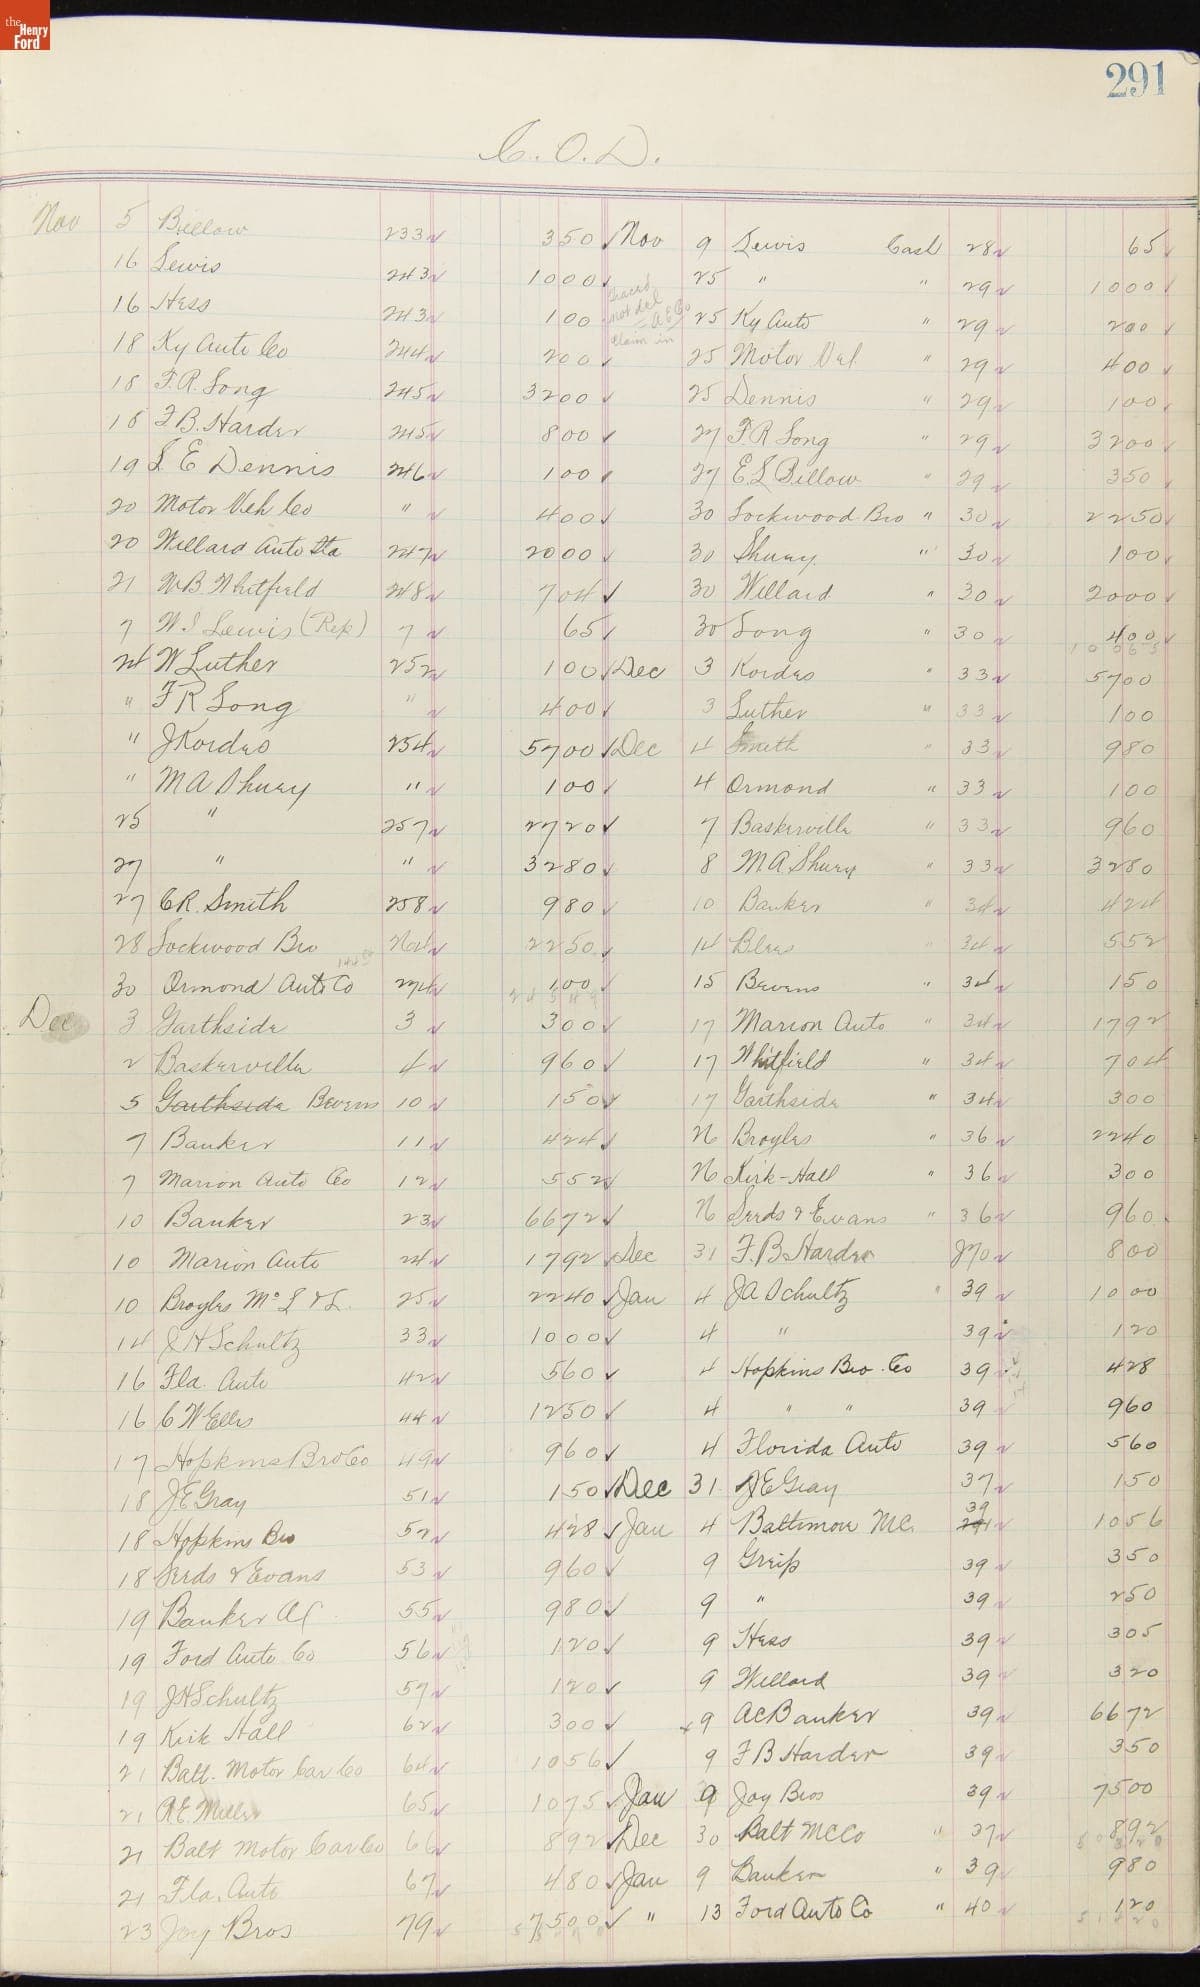 the Henry Ford
291
C.O.D.
Nov 5 Billow 233 350 Nov 9 Lewis Cash 28 65
16 Lewis 243 1000 25 " " 29 1000
16 Hess 243 100 25 Ky Auto " 29 200
not del
claim in
18 Ky Auto Co 244 200 25 Motor Vel " 29 400
18 F.R. Long 245 3200 25 Dennis " 29 100
18 F.B. Harder 245 800 27 F.R Long " 29 3200
19 L E Dennis 246 100 27 E.L Billow " 29 350
20 Motor Veh Co " 400 30 Lockwood Bro " 30 2250
20 Willard Auto Sta 247 2000 30 Shuey " 30 100
21 W.B. Whitfield 248 704 30 Willard " 30 2000
7 W.S Lewis (Rep) 7 65 30 Long " 30 400
10065
24 W Luther 252 100 Dec 3 Kordes " 33 5700
" F R Long " 400 3 Luther " 33 100
" J Kordes 254 5700 Dec 4 Smith " 33 980
" M A Shuey " 100 4 Ormond " 33 100
25 " 257 2720 7 Baskerville " 33 960
27 " " 3280 8 M.A. Shuey " 33 3280
27 C.R. Smith 258 980 10 Banker " 34 424
28 Lockwood Bro 264 2250 14 Blees " 34 552
30 Ormond Auto Co 274 100 15 Bevens " 34 150
Dec 3 Garthside 3 300 17 Marion Auto " 34 1792
2 Baskerville 4 960 17 Whitfield " 34 704
5 Garthside Bevens 10 150 17 Garthside " 34 300
7 Banker 11 424 26 Broyles " 36 2240
7 Marion Auto Co 12 552 26 Kirk-Hall " 36 300
10 Banker 23 6672 26 Seeds & Evans " 36 960
10 Marion Auto 24 1792 Dec 31 F.B. Harder J70 800
10 Broyles Mc L & L. 25 2240 Jan 4 JA Schultz " 39 1000
14 J H Schultz 33 1000 4 " 39 120
16 Fla. Auto 42 560 4 Hopkins Bro. Co 39 428
16 C W Ellis 44 1250 4 " " 39 960
17 Hopkins Bro Co 49 960 4 Florida Auto 39 560
18 J E Gray 51 150 Dec 31 J E Gray 37 150
18 Hopkins Bro 52 428 Jan 4 Baltimore M C. 39 1056
18 Seeds & Evans 53 960 9 Greip 39 350
19 Banker A C 55 980 9 " 39 250
19 Ford Auto Co 56 120 9 Hess 39 305
19 J H Schultz 57 120 9 Willard 39 320
19 Kirk Hall 62 300 x9 A C Banker 39 6672
21 Balt. Motor Car Co 64 1056 9 F B Harder 39 350
21 R.E. Miller 65 1075 Jan 9 Joy Bros 39 7500
21 Balt Motor Car Co 66 892 Dec 30 Balt M C Co " 37 892
21 Fla. Auto 67 480 Jan 9 Banker " 39 980
23 Joy Bros 79 7500 " 13 Ford Auto Co " 40 120